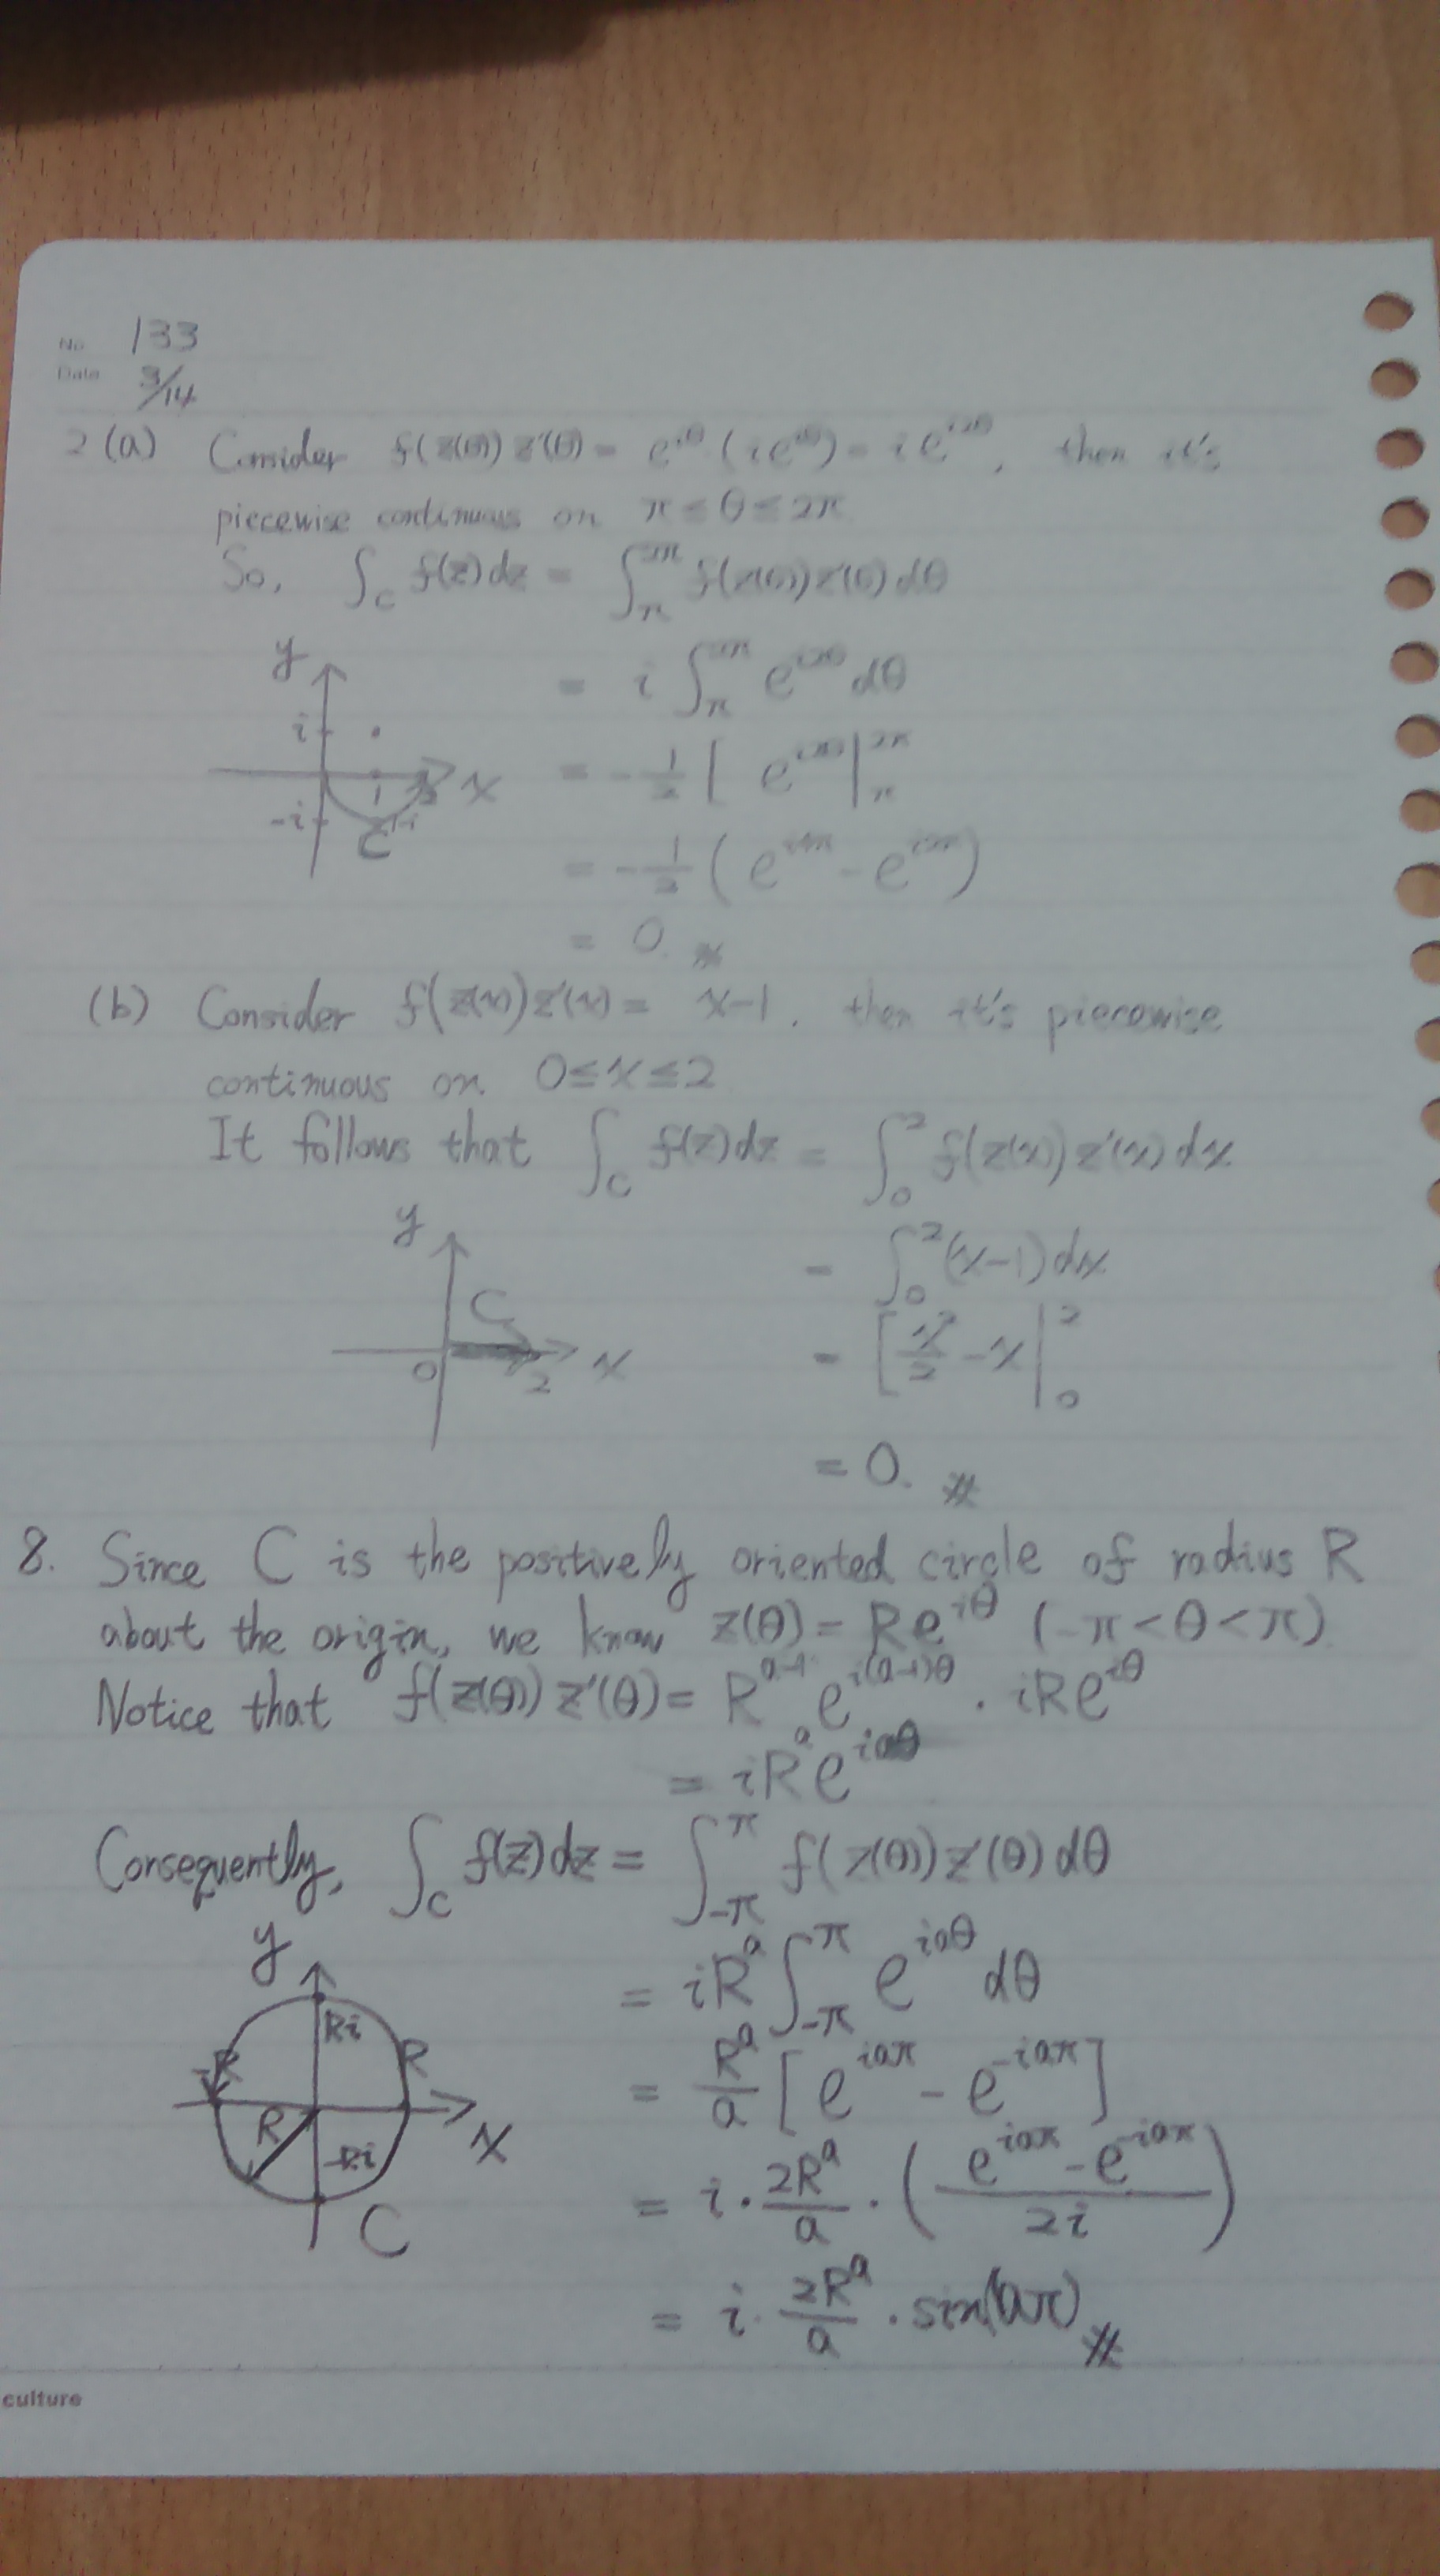 No. 133
Date 3/14
2 (a) Consider f(z(θ)) z'(θ) = e^{iθ} (ie^{iθ}) = i e^{i2θ}, then it's
piecewise continuous on π ≤ θ ≤ 2π
So, ∫_C f(z)dz = ∫_π^{2π} f(z(θ)) z'(θ) dθ
= i ∫_π^{2π} e^{i2θ} dθ
= -\frac{1}{2} [ e^{i2θ} |_π^{2π}
= -\frac{1}{2} ( e^{i4π} - e^{i2π} )
= 0. #
y
i
x
1
2
-i
1-i
C
(b) Consider f(z(x)) z'(x) = x-1, then it's piecewise
continuous on 0 ≤ x ≤ 2
It follows that ∫_C f(z)dz = ∫_0^2 f(z(x)) z'(x) dx
= ∫_0^2 (x-1) dx
= [ \frac{x^2}{2} - x |_0^2
= 0. #
y
C
0
2
x
8. Since C is the positively oriented circle of radius R
about the origin, we know z(θ) = Re^{iθ} (-π < θ < π)
Notice that f(z(θ)) z'(θ) = R^{a-1} e^{i(a-1)θ} · iRe^{iθ}
= iR^a e^{iaθ}
Consequently, ∫_C f(z)dz = ∫_{-π}^{π} f(z(θ)) z'(θ) dθ
= iR^a ∫_{-π}^{π} e^{iaθ} dθ
= \frac{R^a}{a} [ e^{iaπ} - e^{-iaπ} ]
= i · \frac{2R^a}{a} · ( \frac{e^{iaπ} - e^{-iaπ}}{2i} )
= i · \frac{2R^a}{a} · sin(aπ) #
y
Ri
-R
R
R
x
-Ri
C
culture